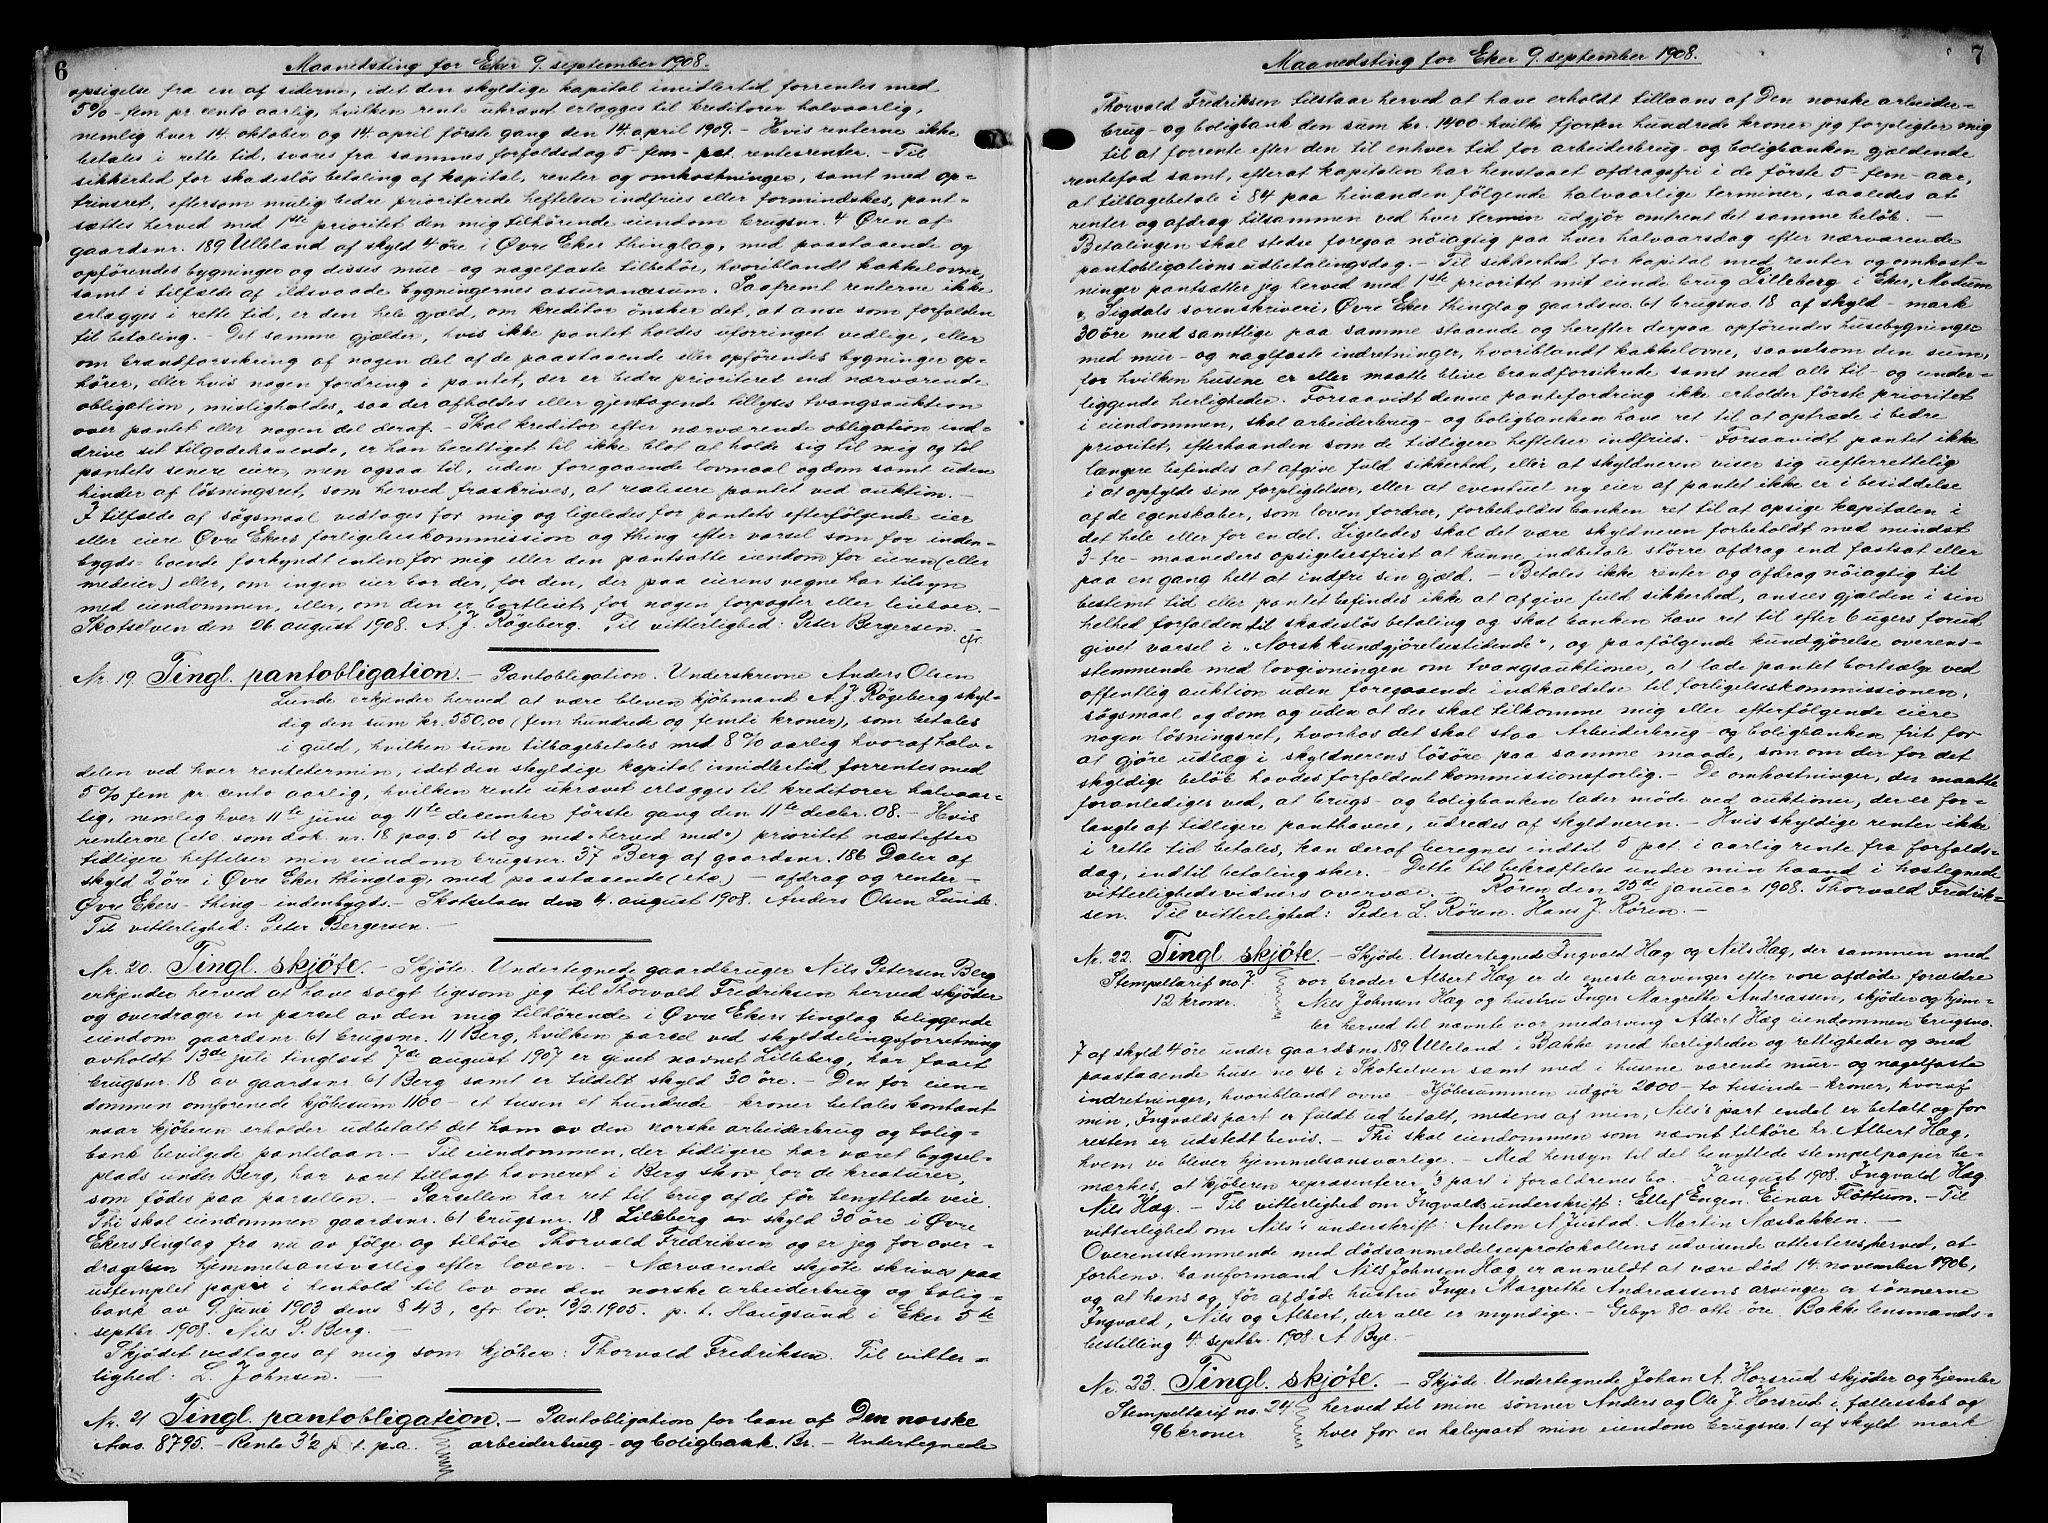 6
Maanedsting for Eker 9. september 1908.
opsigelse fra en af siderne, idet den skyldige kapital imidlertid forrentes med
5% - fem pr. cento aarlig, hvilken rente ukrævet erlægges til kreditorer halvaarlig,
nemlig hver 14. oktober og 14 april förste gang den 14. april 1909. - Hvis renterne ikke
betales i rette tid, svares fra sammes forfaldsdag 5 - fem - pct. rentesrenter. - Til
sikkerhed for skadeslös betaling af kapital, renter og omkostninger, samt med op-
trinsret, eftersom mulig bedre prioriterede heftelser indfries eller formindskes, pant-
sættes herved med 1ste prioritet den mig tilhörende eiendom brugsnr. 4 Ören af
gaardsnr. 189 Ulleland af skyld 4 öre i Øvre Eker thinglag, med paastaaende og
opförendes bygninger og disses mur- og nagelfaste tilbehör, hvoriblandt kakkelovne,
samt i tilfælde af ildsvaade bygningernes assurancesum. Saafremt renterne ikke
erlægges i rette tid, er den hele gjæld, om kreditor önsker det, at anse som forfalden
til betaling. - Det samme gjælder, hvis ikke pantet holdes uforringet vedlige, eller
om brandforsikring af nogen del af de paastaaende eller opförendes bygninger op-
hörer, eller hvis nogen fordring i pantet, der er bedre prioriteret end nærværende
obligation, misligholdes, saa der afholdes eller gjentagende tillyses tvangsauktion
over pantet eller nogen del deraf. - Skal kreditor efter nærværende obligation ind-
drive sit tilgodehavende, er han berettiget til ikke blot at holde sig til mig og til
pantets senere eiere, men ogsaa til, uden foregaaende lovmaal og dom samt uden
hinder af lösningsret, som herved fraskrives, at realisere pantet ved auktion. -
I tilfælde af sögsmaal vedtages for mig og ligeledes for pantets efterfölgende eier
eller eiere Øvre Ekers forligelseskommission og thing efter varsel som for inden-
bygds- boende forkyndt enten for mig eller den pantsatte eiendom for eieren (eller
medeier) eller, om ingen eier bor der, for den, der paa eierens vegne har tilsyn
med eiendommen, eller, om den er bortleiet, for nogen forpagter eller leielver. -
Skotselven den 26. august 1908. A. J. Rögeberg. Til vitterlighed: Peter Bergersen.
cfr.
Nr. 19. Tingl. pantobligation. - Pantobligation. Underskrevne Anders Olsen
Lunde erkjender herved at være bleven kjöbmand A. J. Rögeberg skyl-
dig den sum kr. 550,00 (fem hundrede og femti kroner), som betales
i guld, hvilken sum tilbagebetales med 8% aarlig hvoraf halv-
delen ved hver rentetermin, idet den skyldige kapital imidlertid forrentes med
5% fem pr. cento aarlig, hvilken rente ukrævet erlægges til kreditorer halvaar-
lig, nemlig hver 11te juni og 11te december förste gang den 11te decbr. 08. - Hvis
renterne (etc som dok. nr. 18 pag. 5 til og med „herved med“) prioritet næstefter
tidligere heftelser min eiendom brugsnr. 37 Berg af gaardsnr. 186 Daler af
skyld 2 öre i Øvre Eker thinglag, med paastaaende (etc) - afdrag og renter -
Øvre Ekers - thing - indenbygds. - Skotselven den 4. august 1908. Anders Olsen Lunde.
Til vitterlighed: Peter Bergersen. -
Nr. 20. Tingl. skjöte. - Skjöte. Undertegnede gaardbruger Nils Petersen Berg
erkjender herved at have solgt ligesom jeg til Thorvald Fredriksen herved skjöder
og overdrager en parsel av den mig tilhörende i Øvre Ekers tinglag beliggende
eiendom gaardsnr. 61 brugsnr. 11 Berg, hvilken parsel ved skylddelingsforretning
avholdt 13de juli tinglæst 7de august 1907 er givet navnet Lilleberg, har faaet
brugsnr. 18 av gaardsnr. 61 Berg samt er tildelt skyld 30 öre. - Den for eien-
dommen omforenede kjöbesum 1100 - et tusen et hundrede - kroner betales kontant
naar kjöberen erholder udbetalt det ham av den norske arbeiderbrug og bolig-
bank bevilgede pantelaan. - Til eiendommen, der tidligere har været bygsel-
plads under Berg, har været tillagt havneret i Berg skov for de kreaturer,
som födes paa parsellen. - Parsellen har ret til brug af de för benyttede veie.
Thi skal eiendommen gaardsnr. 61 brugsnr. 18 Lilleberg av skyld 30 öre i Øvre
Ekers tinglag fra nu av fölge og tilhöre Thorvald Fredriksen og er jeg for over-
dragelsen hjemmelsansvarlig efter loven. - Nærværende skjöte skrives paa
ustemplet papir i henhold til lov om den norske arbeiderbrug og bolig-
bank av 9. juni 1903 dens § 43, cfr. lov 13/2 1905. p. t. Haugsund i Eker 5te
septbr. 1908. Nils P. Berg.
Skjödet vedtages af mig som kjöber: Thorvald Fredriksen. Til vitter-
lighed: L. Johnsen. -
Nr. 21 Tingl. pantobligation. - Pantobligation for laan af Den norske
Ans. 8795. - Rente 3½ p. t. p.a. arbeiderbrug- og boligbank. Br. - Undertegnede
7
Maanedsting for Eker 9. september 1908.
Thorvald Fredriksen tilstaar herved at have erholdt tillaans af Den norske arbeider-
brug- og boligbank den sum kr. 1400 - hvilke fjorten hundrede kroner jeg forpligter mig
til at forrente efter den til enhver tid for arbeiderbrug- og boligbanken gjældende
rentefod samt, efterat kapitalen har henstaaet afdragsfri i de förste 5 - fem - aar,
at tilbagebetale i 84 paa hinanden fölgende halvaarlige terminer, saaledes at
renter og afdrag tilsammen ved hver termin udgjör omtrent det samme belöb. -
Betalingen skal stedse foregaa nöiagtig paa hver halvaarsdag efter nærværende
pantobligations udbetalingsdag. - Til sikkerhed for kapital med renter og omkost-
ninger pantsætter jeg herved med 1ste prioritet mit eiende brug Lilleberg i Eker, Modum
„ Sigdals sorenskriveri, Øvre Eker thinglag gaardsno. 61 brugsno. 18 af skyld - mark
30 öre med samtlige paa samme staaende og herefter derpaa opförendes husebygninger
med mur- og naglfaste indretninger, hvoriblandt kakkelovne, saavelsom den sum,
for hvilken husene er eller maatte blive brandforsikrede samt med alle til- og under-
liggende herligheder. Forsaavidt denne pantefordring ikke erholder förste prioritet
i eiendommen, skal arbeiderbrug- og boligbanken have ret til at optræde i bedre
prioritet, efterhaanden som de tidligere heftelser indfries. - Forsaavidt pantet ikke
længere befindes at afgive fuld sikkerhed, eller at skyldneren viser sig uefterrettelig
i at opfylde sine forpligtelser, eller at eventuel ny eier af pantet ikke er i besiddelse
af de egenskaber, som loven fordrer, forbeholdes banken ret til at opsige kapitalen i
det hele eller for en del. Ligeledes skal det være skyldneren forbeholdt med mindst
3 - tre - maaneders opsigelsesfrist at kunne indbetale större afdrag end fastsat eller
paa en gang helt at indfri sin gjæld. - Betales ikke renter og afdrag nöiagtig til
bestemt tid eller pantet befindes ikke at afgive fuld sikkerhed, ansees gjælden i sin
helhed forfalden til skadeslös betaling og skal banken have ret til efter 6 ugers forud
givet varsel i „Norsk kundgjörelsestidende“, og paafölgende kundgjörelse overens-
stemmende med lovgivningen om tvangsauktioner, at lade pantet bortsælge ved
offentlig auktion uden foregaaende indkaldelse til forligelseskommissionen,
sögsmaal og dom og uden at der skal tilkomme mig eller efterfölgende eiere
nogen lösningsret, hvorhos det skal staa Arbeiderbrug- og boligbanken frit for
at gjöre udlæg i skyldnerens lösöre paa samme maade, som om der for det
skyldige belöb havdes forfaldent kommissionsforlig. - De omkostninger, der maatte
foranlediges ved, at brugs- og boligbanken lader möde ved auktioner, der er for-
langte af tidligere panthavere, udredes af skyldneren. - Hvis skyldige renter ikke
i rette tid betales, kan deraf beregnes indtil 5 pct. i aarlig rente fra forfalds-
dag, indtil betaling sker. - Dette til bekræftelse under min haand i hostegnede
vitterlighedsvidners overvær. - Rören den 25de januar 1908. Thorvald Fredrik-
sen. Til vitterlighed: Peder L. Rören. Hans J. Rören. -
Nr. 22. Tingl. skjöte. - Skjöde. Undertegnede Ingvald Hæg og Nils Hæg, der sammen med
Stempeltarif no. 7. vor broder Albert Hæg er de eneste arvinger efter vore afdöde forældre
12 kroner. Nils Johnsen Hæg og hustru Inger Margrethe Andreassen, skjöder og hjem-
ler herved til nævnte vor medarving Albert Hæg eiendommen brugsno.
7 af skyld 4 öre under gaardsno. 189 Ulleland i Bakke med herligheder og rettigheder og med
paastaaende huse no 46 i Skotselven samt med i husene værende mur- og nagelfaste
indretninger, hvoriblandt ovne - Kjöbesummen udgör 2000 - to tusinde - kroner, hvoraf
min, Ingvalds part er fuldt ud betalt, medens af min, Nils's part endel er betalt og for
resten er udstedt bevis. - Thi skal eiendommen som nævnt tilhöre hr. Albert Hæg,
hvem vi bliver hjemmelsansvarlige. - Med hensyn til det benyttede stempelpapir be-
mærkes, at kjöberen repræsenterer ⅓ part i forældrenes bo. - 7 august 1908. Ingvald Hæg.
Nils Hæg. - Til vitterlighed om Ingvalds underskrift: Ellef Engen. Einar Flöttum. - Til
vitterlighed om Nils's underskrift: Anton N. Justad. Martin Næsbakken. -
Overensstemmende med dödsanmeldelsesprotokollens udvisende attesteres herved, at
forhenv. baneformand Nils Johnsen Hæg er anmeldt at være död 14. november 1906,
og at hans og för afdöde hustru Inger Margrethe Andreassens arvinger er sönnerne
Ingvald, Nils og Albert, der alle er myndige. - Gebyr 80 otti öre. Bakke lensmands-
bestilling 4. septbr. 1908. A. Bye. -
Nr. 23. Tingl. skjöte. - Skjöde. Undertegnede Johan A. Horsrud skjöder og hjemler
Stempeltarif no. 24 herved til mine sönner Anders og Ole J. Horsrud i fællesskab og
96 kroner hver for en halvpart min eiendom brugsno. 1 af skyld mark